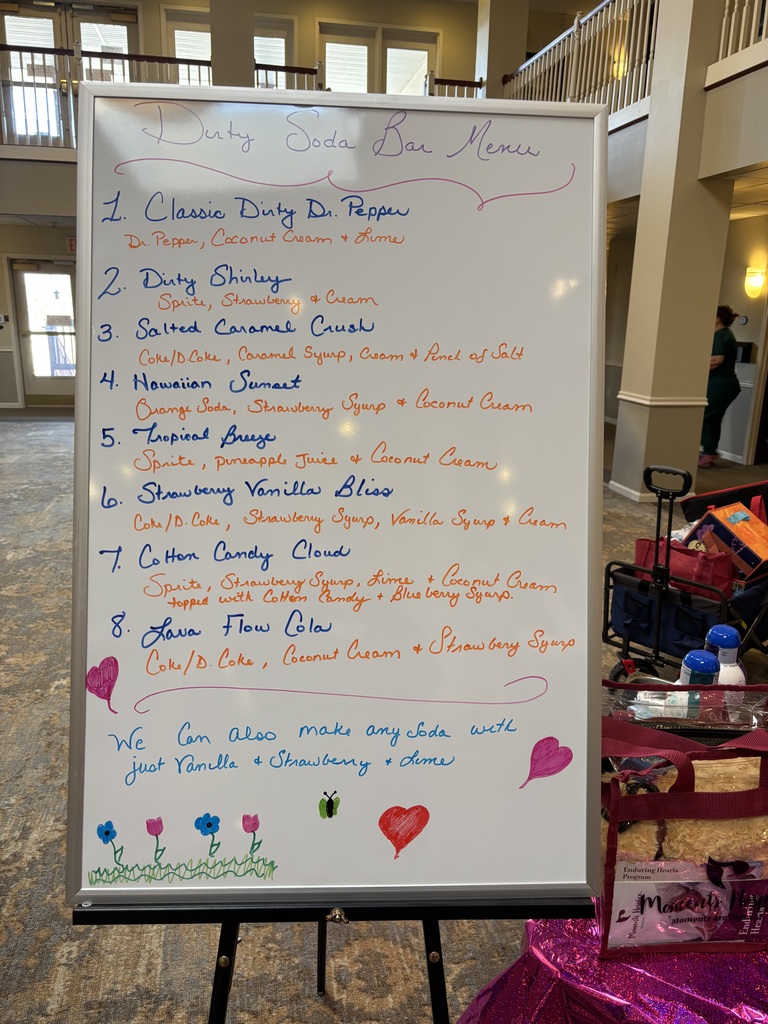 Dirty Soda Bar Menu
1. Classic Dirty Dr. Pepper
Dr. Pepper, Coconut Cream + Lime
2. Dirty Shirley
Sprite, Strawberry & Cream
3. Salted Caramel Crush
Coke/D.Coke, Caramel Syurp, Cream + Pinch of Salt
4. Hawaiian Sunset
Orange Soda, Strawberry Syurp + Coconut Cream
5. Tropical Breeze
Sprite, pineapple Juice + Coconut Cream
6. Strawberry Vanilla Bliss
Coke/D.Coke, Strawberry Syurp, Vanilla Syurp + Cream
7. Cotton Candy Cloud
Sprite, Strawberry Syurp, Lime + Coconut Cream
topped with Cotton Candy + Blueberry Syurp.
8. Lava Flow Cola
Coke/D.Coke, Coconut Cream + Strawberry Syurp
We Can also make any Soda with
just Vanilla + Strawberry + Lime
Enduring Hearts
Program
Moments
Moments are
Enduring
Hearts